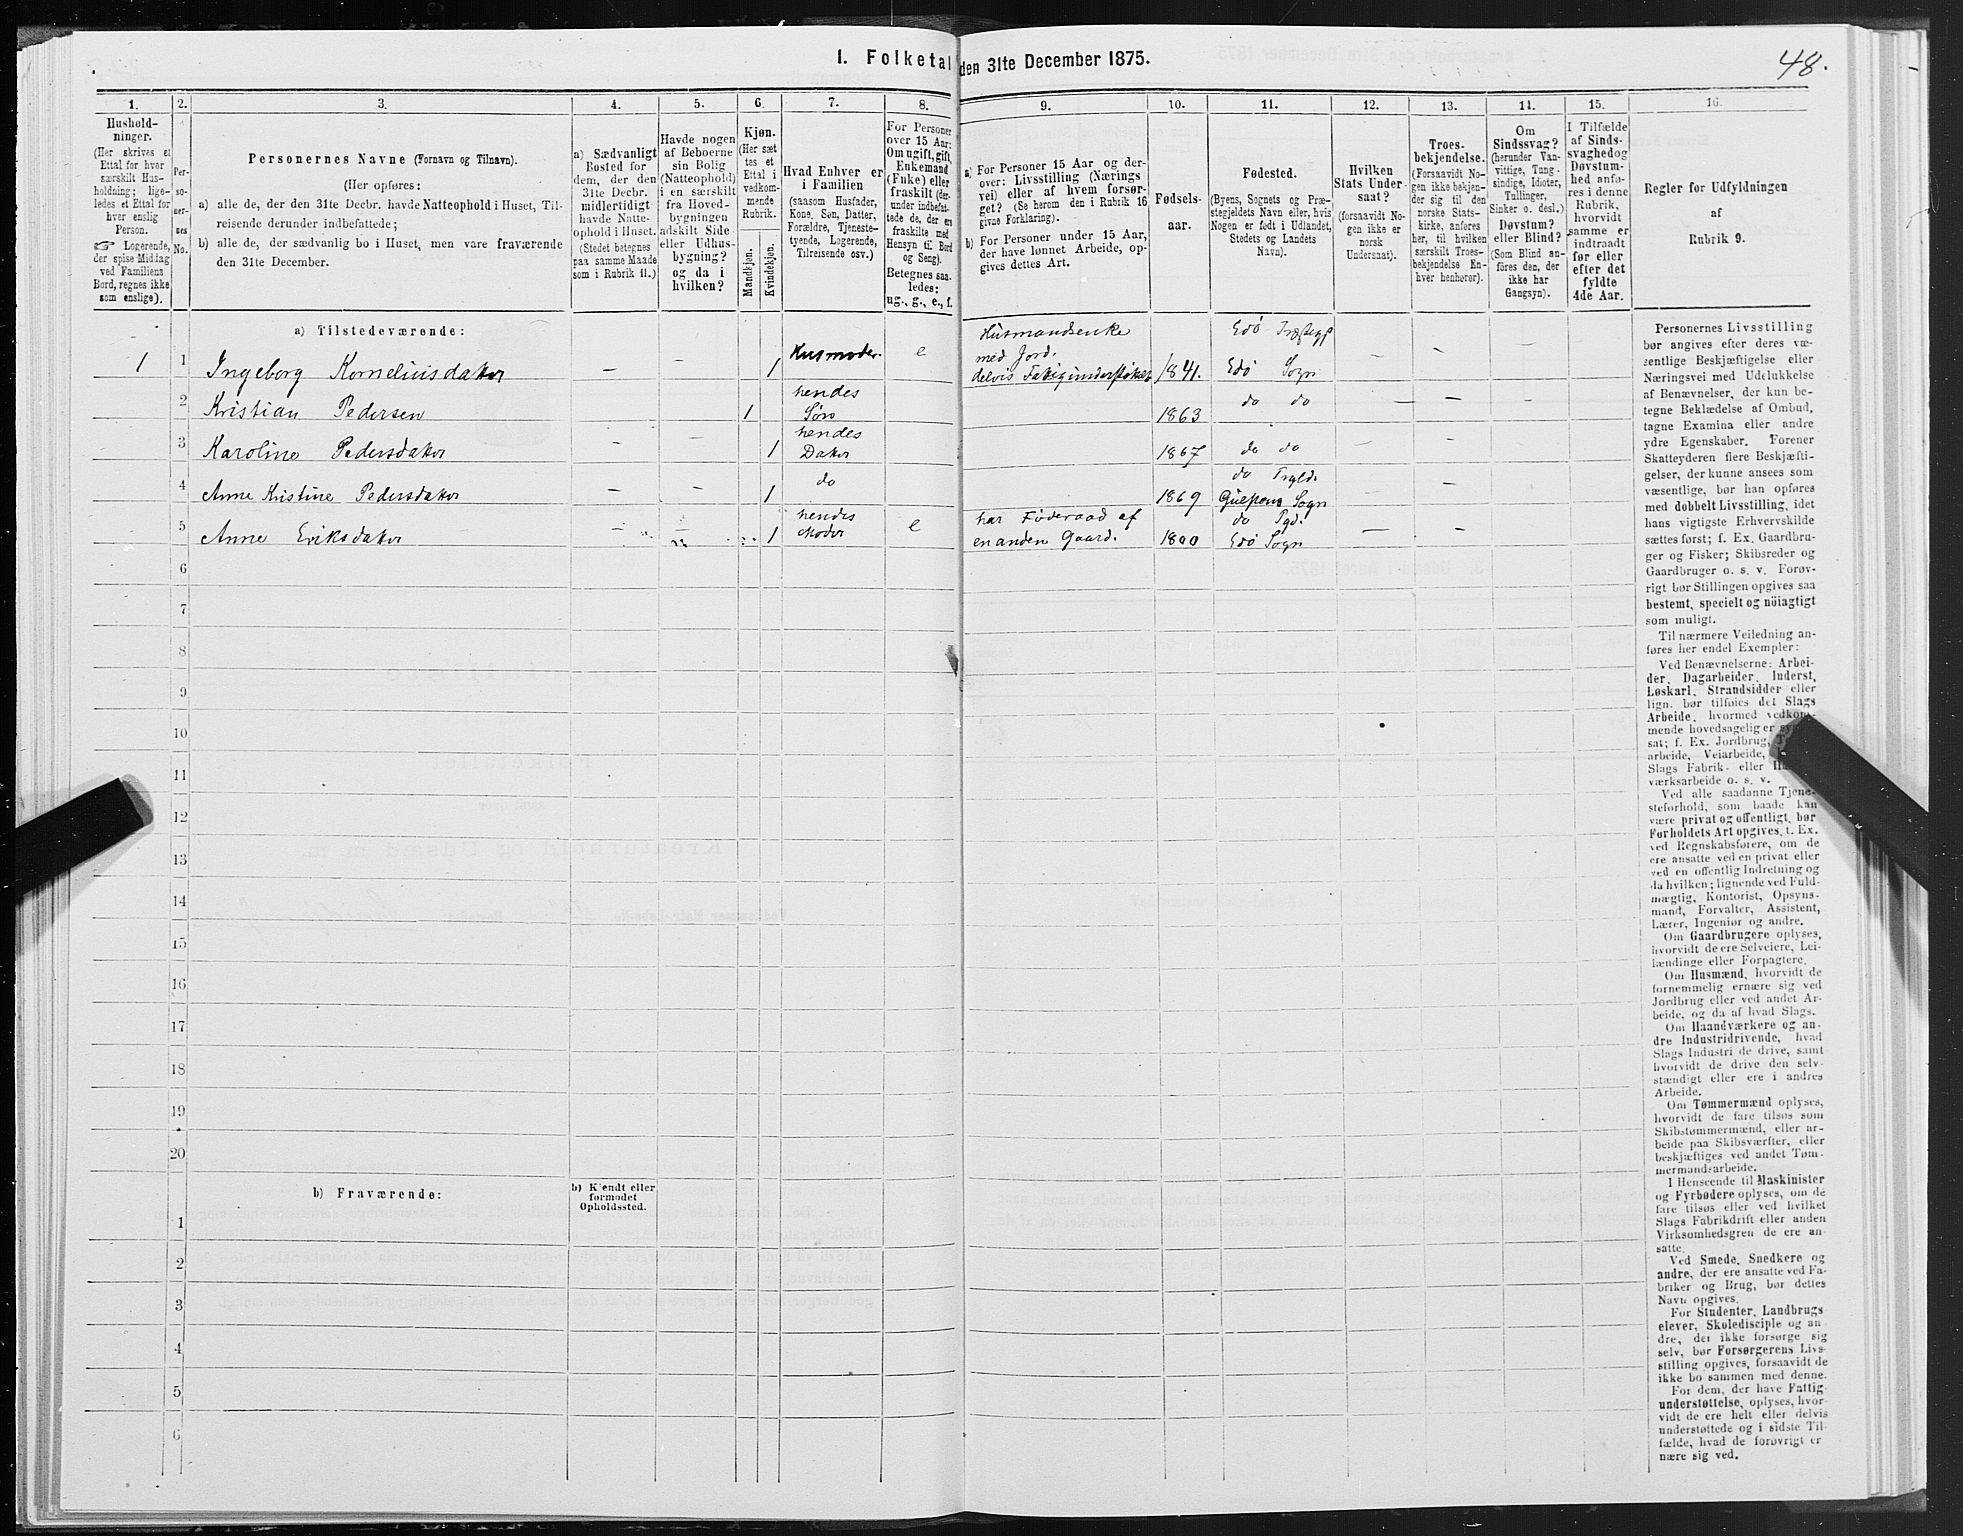 I. Folketal den 31te December 1875.
48.
1. 2. 3. 4. 5. 6. 7. 8. 9. 10. 11. 12. 13. 14. 15. 16.
Hushold-
ninger.
(Her skrives et
Ettal for hver
særskilt Hus-
holdning; lige-
ledes et Ettal for
hver enslig
Person.
☞ Logerende,
der spise Middag
ved Familiens
Bord, regnes ikke
som enslige).
Per-
so-
ner-
nes
No.
Personernes Navne (Fornavn og Tilnavn).
(Her opføres:
a) alle de, der den 31te Decbr. havde Natteophold i Huset, Til-
reisende derunder indbefattede;
b) alle de, der sædvanlig bo i Huset, men vare fraværende
den 31te December.
a) Sædvanligt
Bosted for
dem, der den
31te Decbr.
midlertidigt
havde Natte-
ophold i Huset.
(Stedet betegnes
paa samme Maade
som i Rubrik 11.)
Havde nogen
af Beboerne
sin Bolig
(Natteophold)
i en særskilt
fra Hoved-
bygningen
adskilt Side-
eller Udhus-
bygning?
og da i
hvilken?
Kjøn.
(Her sæt
tes et
Ettal i
vedkom-
mende
Rubrik.
Mandkjøn.
Kvindekjøn.
Hvad Enhver er
i Familien
(saasom Husfader,
Kone, Søn, Datter,
Forældre, Tjeneste-
tyende, Logerende,
Tilreisende osv.)
For Personer
over 15 Aar:
Om ugift, gift,
Enkemand
(Enke) eller
fraskilt (der-
under indbefat-
tede de, der ere
fraskilte med
Hensyn til Bord
og Seng).
Betegnes saa-
ledes:
ug., g., e., f.
a) For Personer 15 Aar og der-
over: Livsstilling (Nærings
vei) eller af hvem forsør-
get? (Se herom den i Rubrik 16
givne Forklaring).
b) For Personer under 15 Aar,
der have lønnet Arbeide, op-
gives dettes Art.
Fødsels-
aar.
Fødested.
(Byens, Sognets og Præ-
stegjeldets Navn eller, hvis
Nogen er født i Udlandet,
Stedets og Landets
Navn).
Hvilken
Stats Under-
saat?
(forsaavidt No-
gen ikke er
norsk
Undersaat).
Troes-
bekjendelse.
(Forsaavidt No-
gen ikke bekjen-
der sig til den
norske Stats-
kirke, anføres
her, til hvilken
særskilt Troes-
bekjendelse En-
hver henhører).
Om
Sindssvag?
(herunder Van-
vittige, Tung-
sindige, Idioter,
Tullinger,
Sinker o. desl.)
Døvstum?
eller Blind?
(Som Blind an-
føres den, der
ikke har
Gangsyn).
I Tilfælde
af Sinds-
svaghed og
Døvstum-
hed anfø-
res i denne
Rubrik,
hvorvidt
samme er
indtraadt
før eller
efter det
fyldte
4de Aar.
Regler for Udfyldningen
af
Rubrik 9.
a) Tilstedeværende:
1 1 Ingeborg Korneliusdater – – 1 Husmoder. e Husmandsenke
med Jord.
delvis Fatigunderstøttet 1841. Edö Prestegj
Edö Sogn – – –
2 Kristian Pedersen 1 hendes
Søn 1863 do do – – –
3 Karoline Pedersdater – – 1 hendes
Dater 1867 do do – –
4 Anne Kristine Pedersdater – – 1 do 1869 do Prgld.
Sogn – –
5 Anne Eriksdater – – 1 hendes
Moder e har Föderaad af
en anden Gaard. 1800 do Pgd.
Edö Sogn – –
6
7
8
9
10
11
12
13
14
15
16
17
18
19
20
b) Fraværende:
b) Kjendt eller
formodet
Opholdssted.
1
2
3
4
5
6
Personernes Livsstilling
bør angives efter deres væ-
sentlige Beskjæftigelse eller
Næringsvei med Udelukkelse
af Benævnelser, der kun be-
tegne Beklædelse af Ombud,
tagne Examina eller andre
ydre Egenskaber. Forener
Skatteyderen flere Beskjæfti-
gelser, der kunne ansees som
væsentlige, bør han opføres
med dobbelt Livsstilling, idet
hans vigtigste Erhvervskilde
sættes først; f. Ex. Gaardbru-
ger og Fisker; Skibsreder og
Gaardbruger o. s. v. Forøv-
rigt bør Stillingen opgives saa
bestemt, specielt og nöiagtigt
som muligt.
Til nærmere Veiledning an-
føres her endel Exempler:
Ved Benævnelserne: Arbei-
der, Dagarbeider, Inderst,
Løskarl, Strandsidder eller
lign. bør tilføies det Slags
Arbeide, hvormed vedkom-
mende hovedsagelig er
sat; f. Ex. Jordbrug,
arbeide, Veiarbeide,
Slags Fabrik- eller
værksarbeide o. s. v.
Ved alle saadanne Tjene-
steforhold, som baade kan
være privat og offentligt, bør
Forholdets Art opgives, t. Ex.
ved Regnskabsførere, om de
ere ansatte ved en privat eller
ved en offentlig Indretning og
da hvilken; lignende ved Fuld-
mægtig, Kontorist, Opsyns-
mand, Forvalter, Assistent,
Lærer, Ingeniør og andre.
Om Gaardbrugere oplyses,
hvorvidt de ere Selveiere, Lei-
lændinge eller Forpagtere.
Om Husmænd, hvorvidt de
fornemmelig ernære sig ved
Jordbrug eller ved andet Ar-
beide, og da af hvad Slags.
Om Haandværkere og an-
dre Industridrivende, hvad
Slags Industri de drive, samt
hvorvidt de drive den selv-
stændigt eller ere i andres
Arbeide.
Om Tømmermænd oplyses,
hvorvidt de fare tilsøs som
Skibstømmermænd, eller ar-
beide paa Skibsværfter, eller
beskjæftiges ved andet Tøm-
mermandsarbeide.
I Henseende til Maskinister
og Fyrbødere oplyses, om de
fare tilsøs eller ved hvilket
Slags Fabrikdrift eller anden
Virksomhedsgren de ere an-
satte.
Ved Smede, Snedkere og
andre, der ere ansatte ved Fa-
briker og Brug, bør dettes
Navn opgives.
For Studenter, Landbrugs
elever, Skoledisciple og an-
dre, der ikke forsørge sig
selv, bør Forsørgerens Livs-
stilling opgives, forsaavidt de
ikke bo sammen med denne.
For dem, der have Fattig-
understøttelse, oplyses, hvor-
vidt de ere helt eller delvis
understøttede og i sidste Til-
fælde, hvad de forøvrigt er-
nære sig ved.